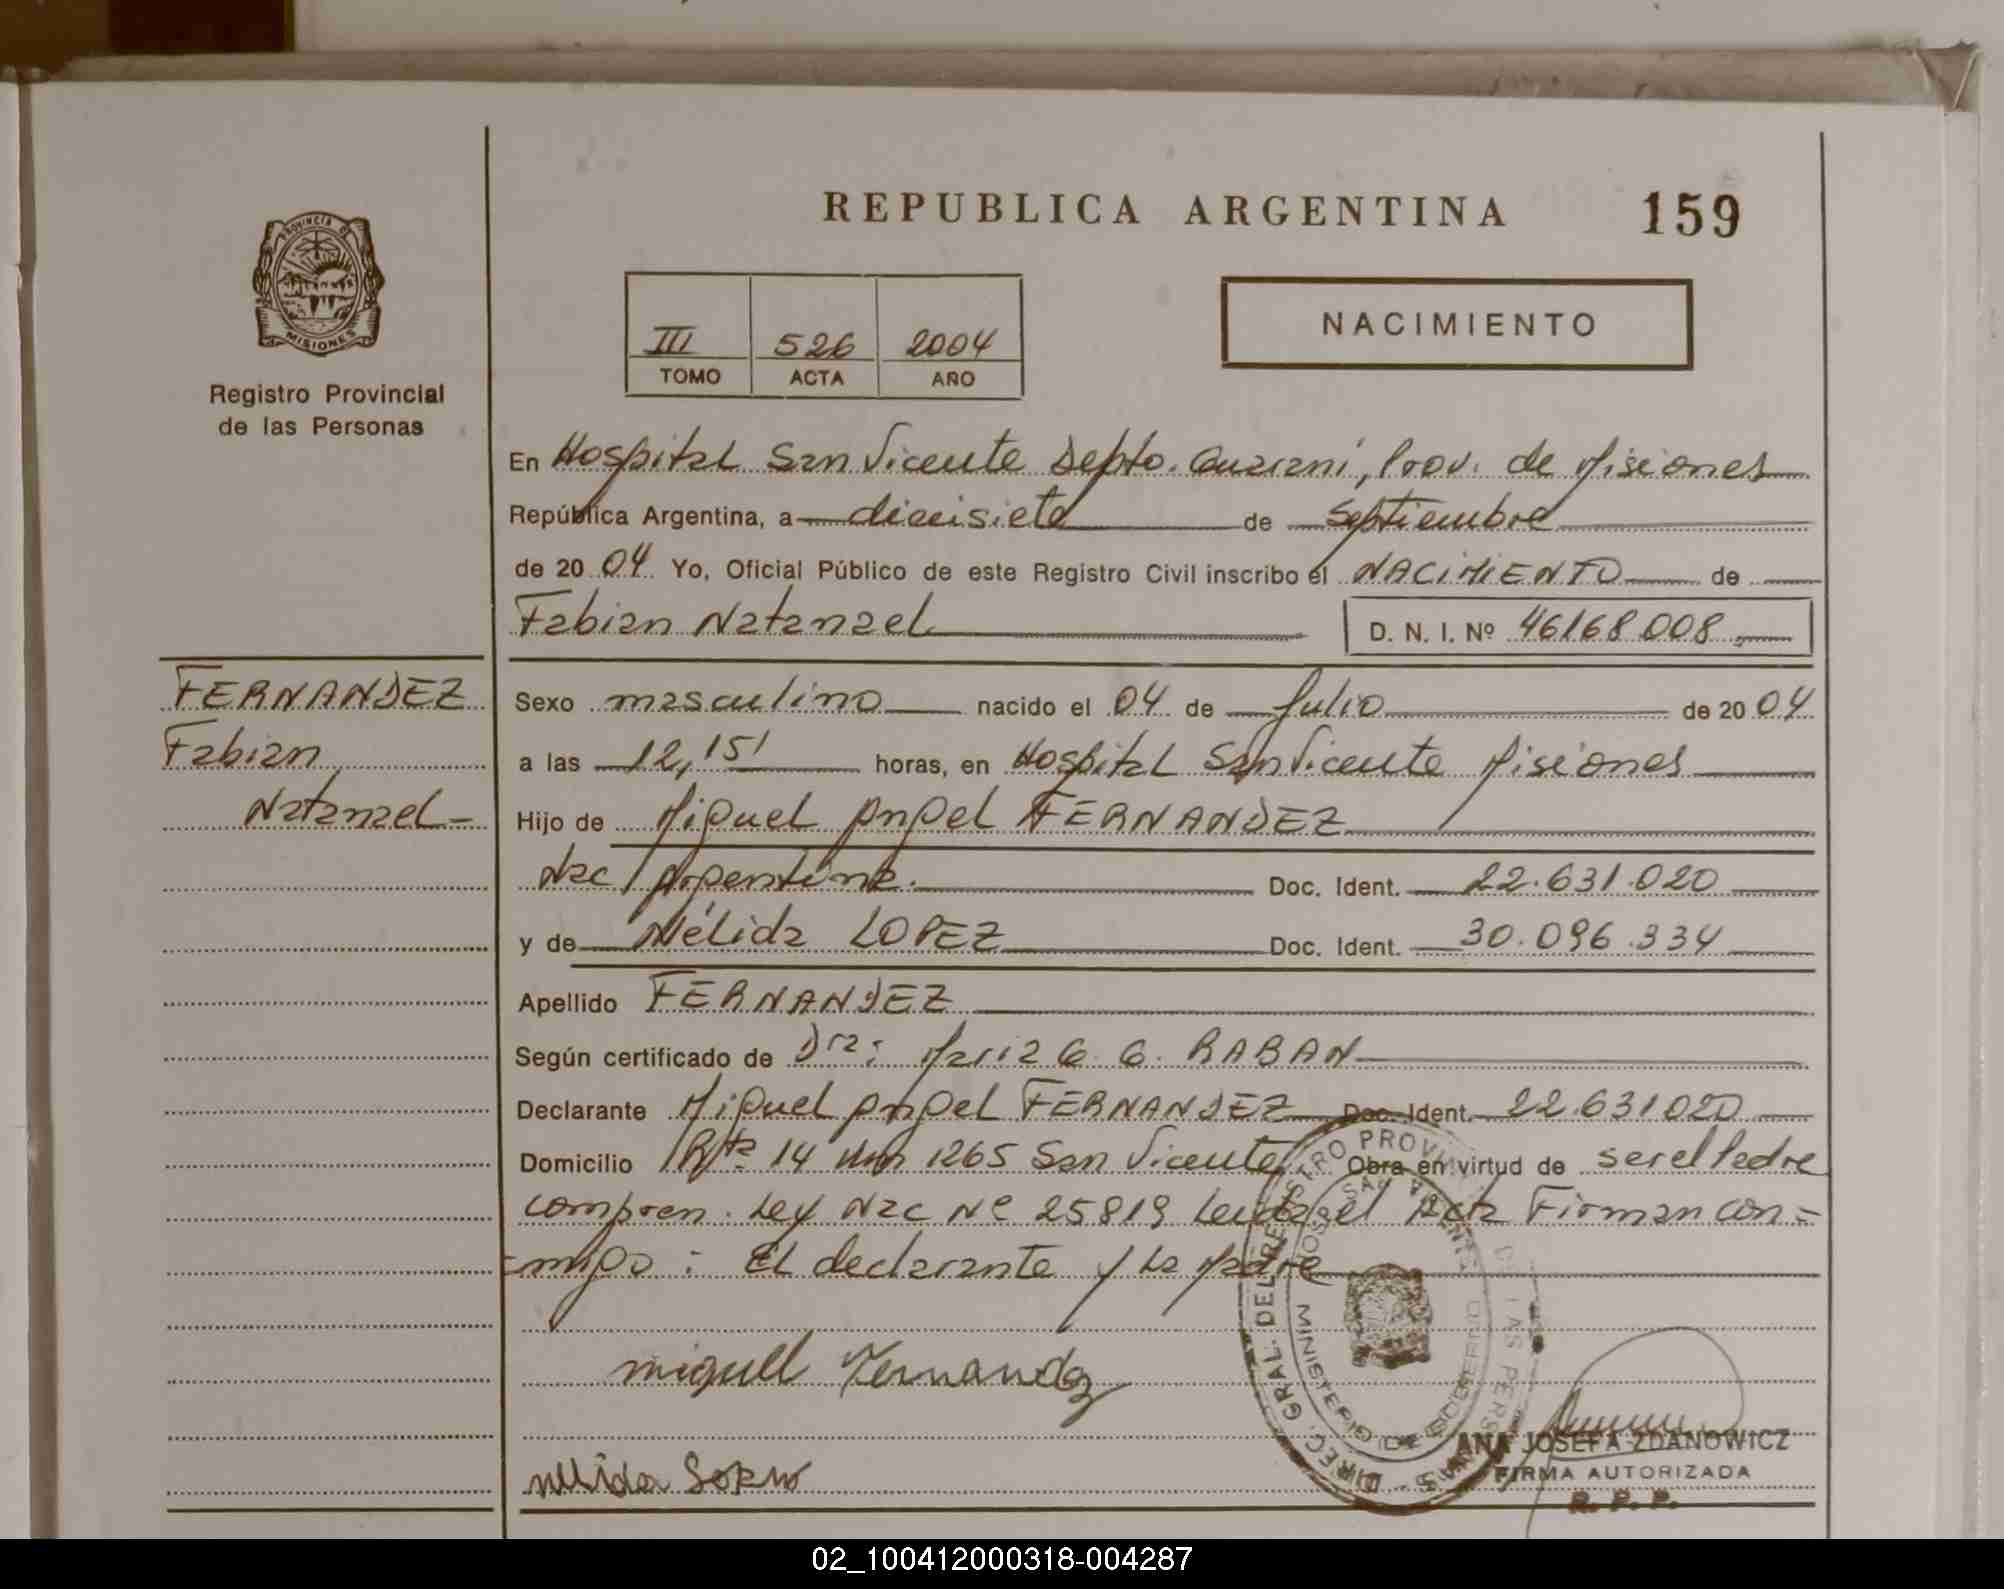 REPUBLICA ARGENTINA 159
PROVINCIA DE
MISIONES
Registro Provincial
de las Personas
III 526 2004
TOMO ACTA AÑO
NACIMIENTO
En Hospital San Vicente Depto. Guaraní, Prov. de Misiones
República Argentina, a diecisiete de Septiembre
de 20 04 Yo, Oficial Público de este Registro Civil inscribo el NACIMIENTO de
Fabian Natanael D. N. I. Nº 46168008
FERNANDEZ
Fabian
Natanael-
Sexo masculino nacido el 04 de Julio de 20 04
a las 12,15' horas, en Hospital San Vicente Misiones
Hijo de Miguel Angel FERNANDEZ
Nac Argentina. Doc. Ident. 22.631.020
y de Nélida LOPEZ Doc. Ident. 30.096.334
Apellido FERNANDEZ
Según certificado de Dra: Maria G. G. RABAN
Declarante Miguel Angel FERNANDEZ Doc. Ident. 22.631020
Domicilio Rta 14 Km 1265 San Vicente Obra en virtud de ser el Padre
compren. Ley Nac Nº 25819 Leida el Acta Firman con=
=migo: El declarante y La Madre
miguel Fernandez
nelida
DIREC. GRAL. DEL REGISTRO PROVINCIAL DE LAS PERSONAS
MINISTERIO DE GOBIERNO
HOSP. SAN VICENTE
ANA JOSEFA ZDANOWICZ
FIRMA AUTORIZADA
R. P. P.
02_100412000318-004287